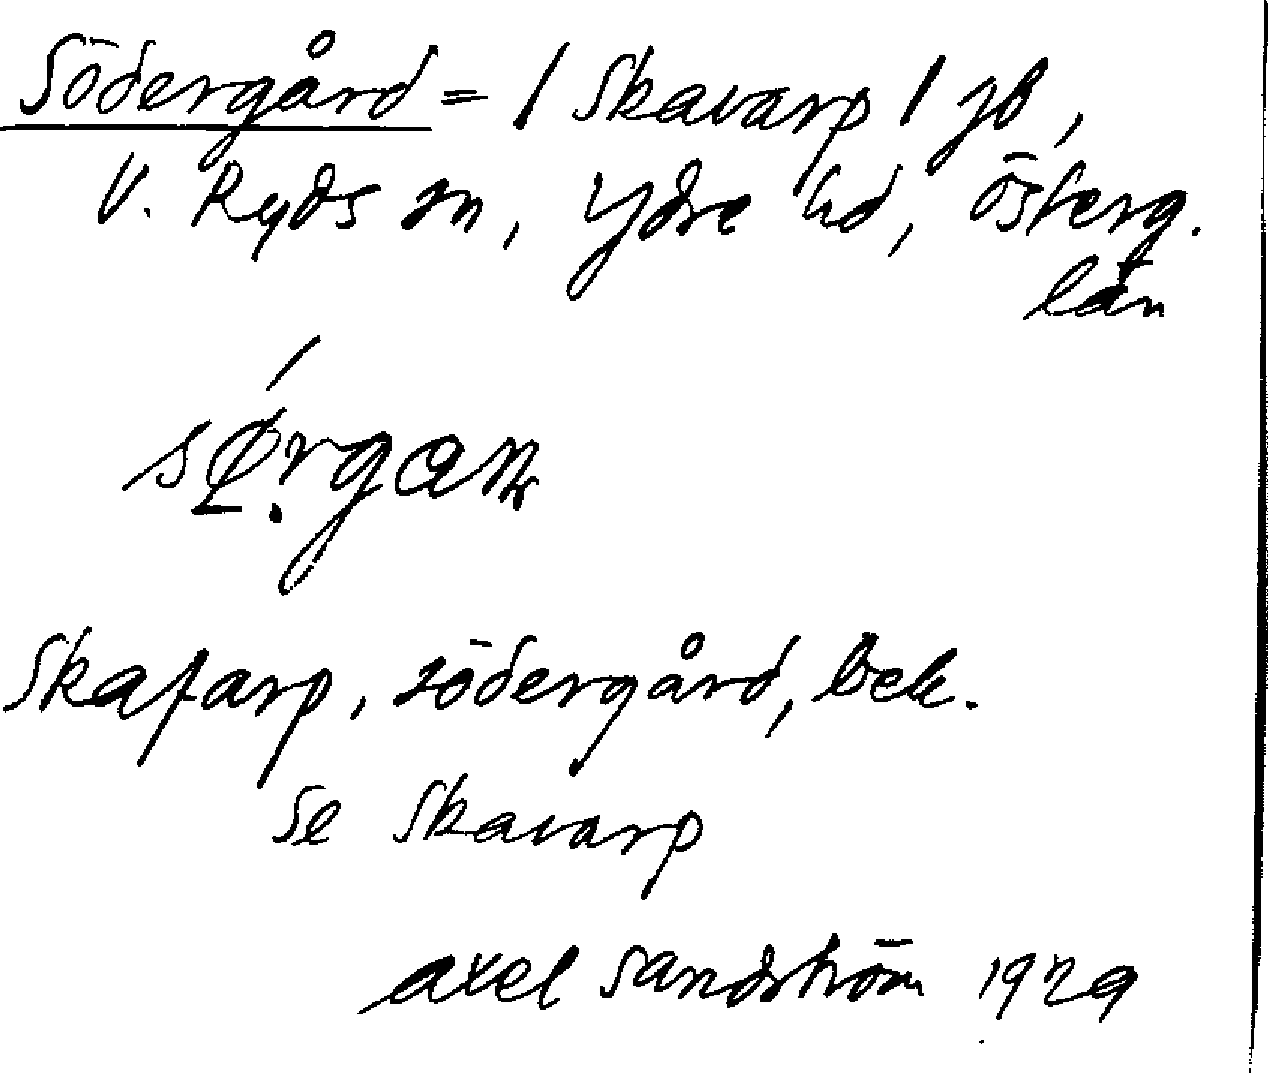 Södergård = / Skavarp / jb,
V. Ryds sn, Ydre hd, Österg.
län
Skafarp, södergård, bek.
Se Skavarp
Axel Sandström 1929